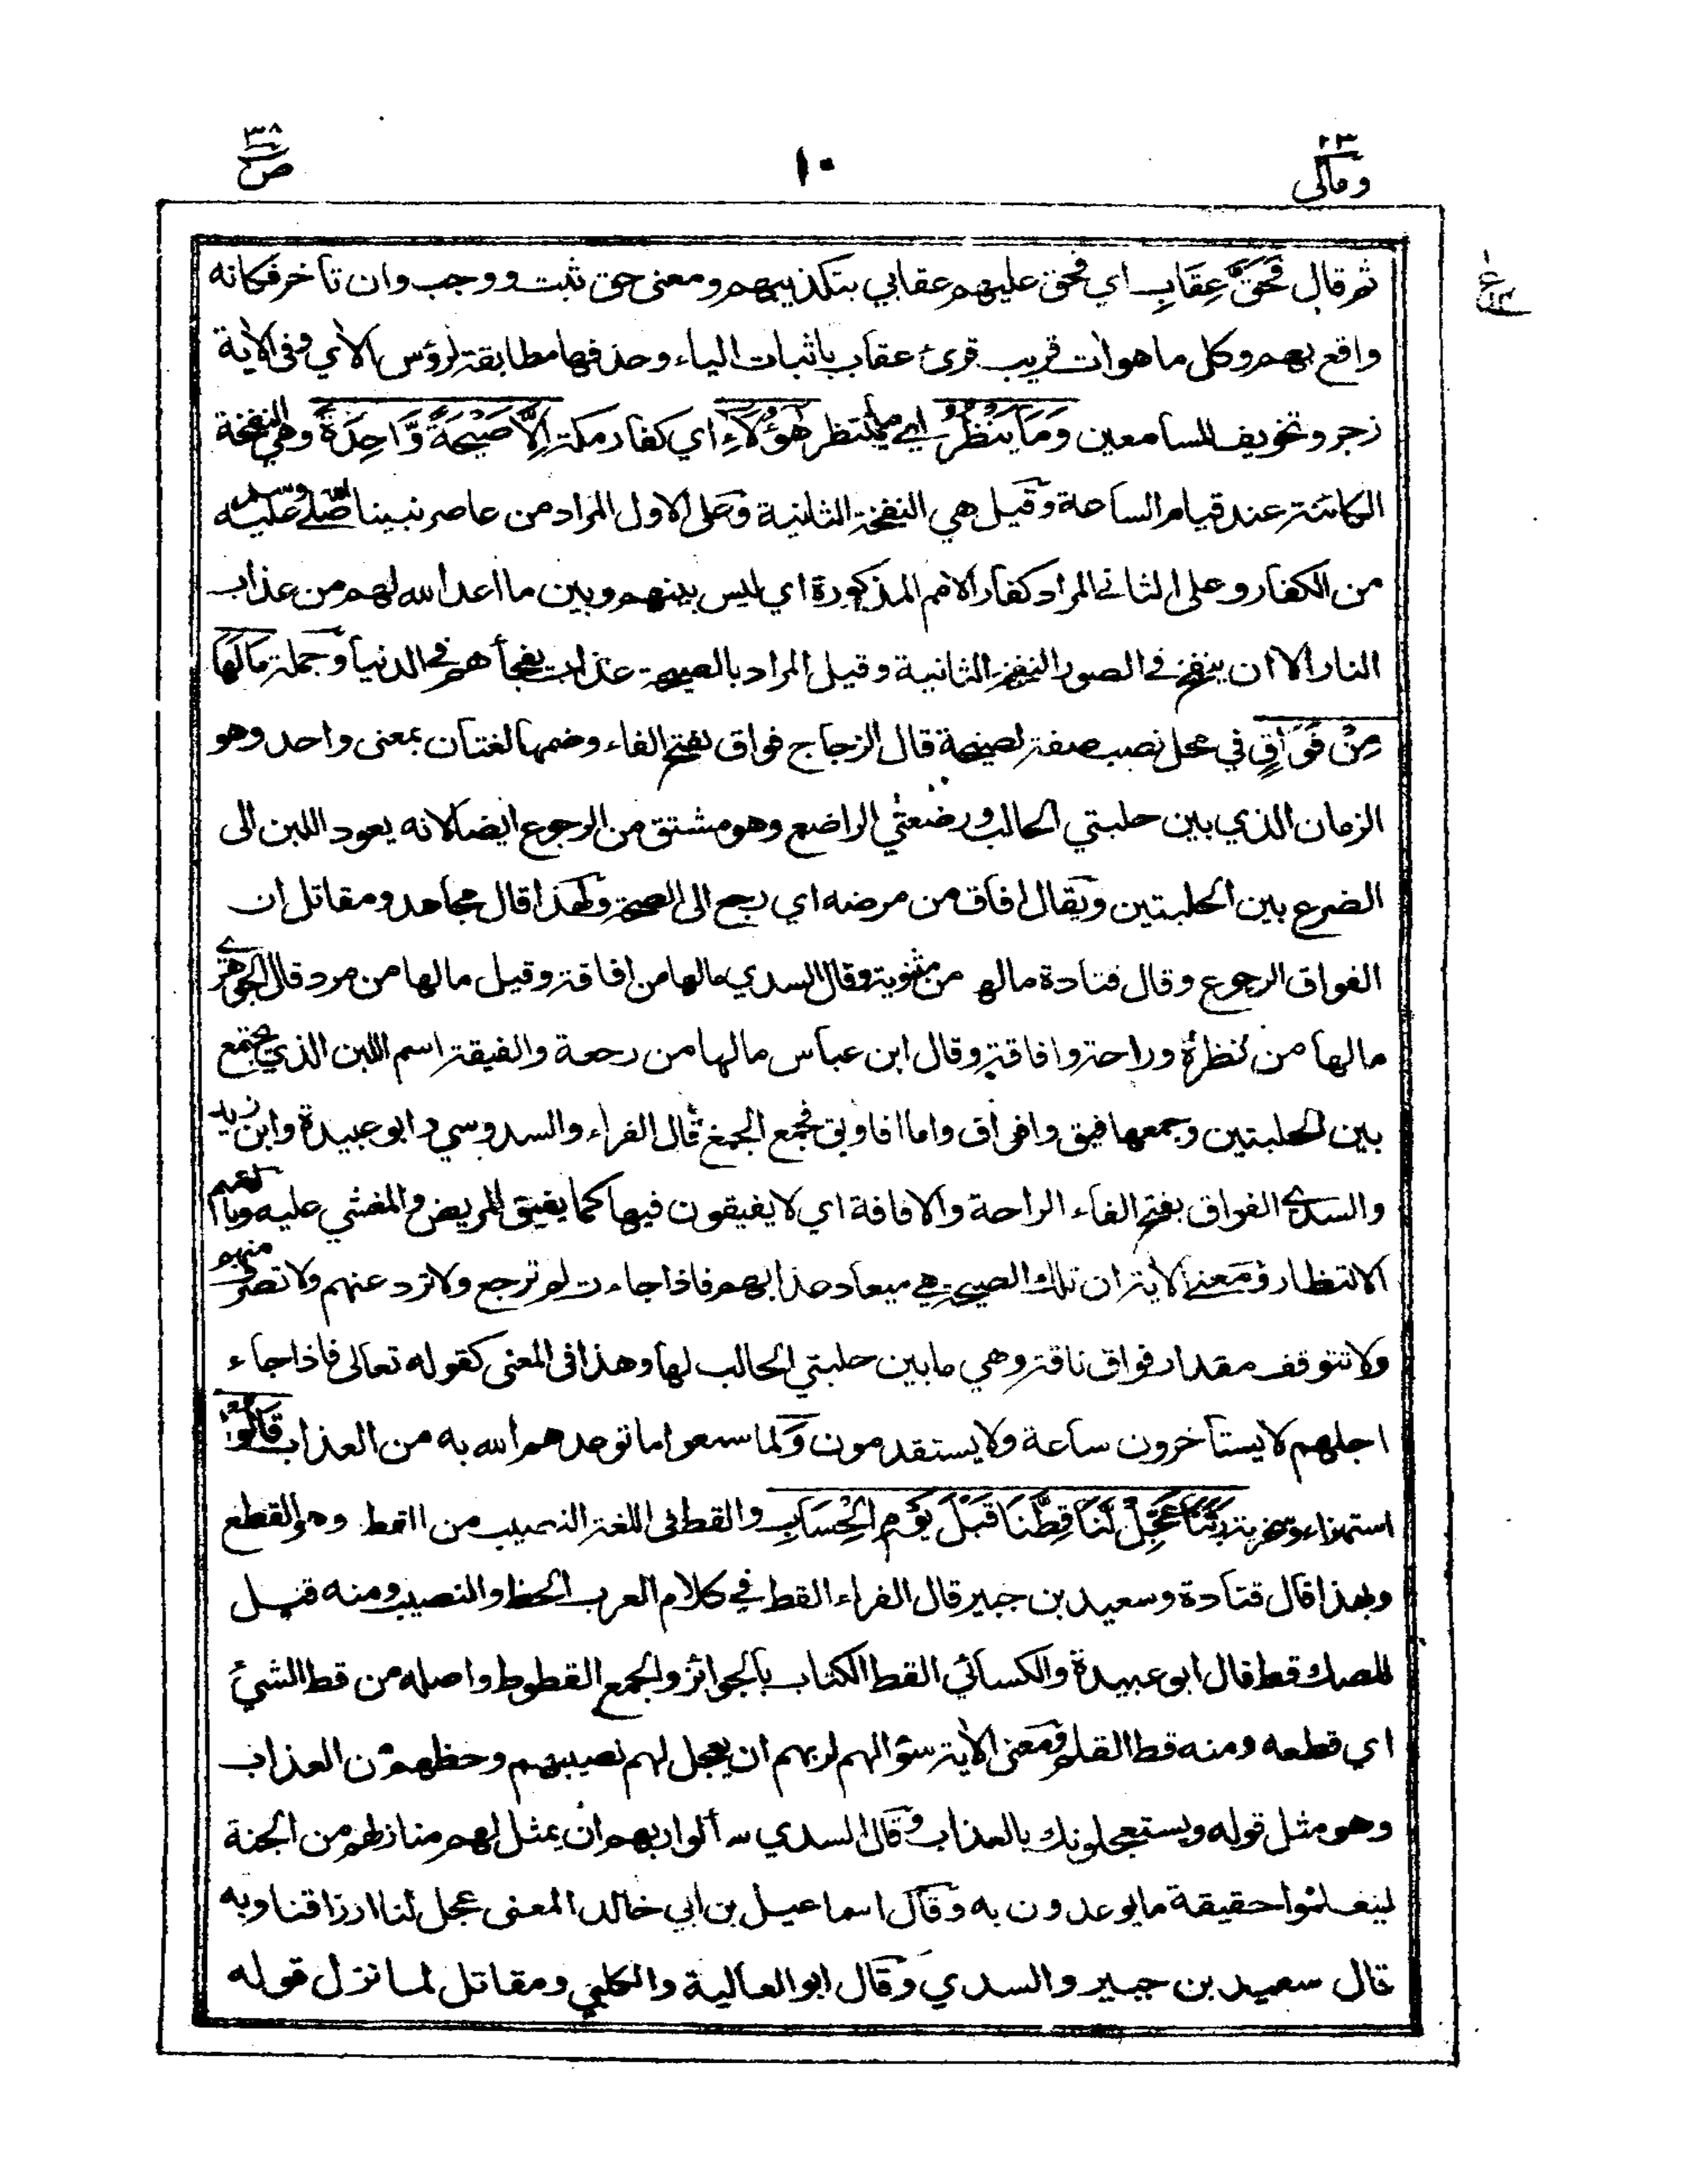 ٢٣ ومالي
١٠
٣٨ ص
ثم قال فَحَقَّ عِقَابِ اي فحق عليهم عقابي بتكذيبهم ومعنى حق ثبت ووجب وان تأخر فكانه
واقع بهم وكل ما هو ات قريب قرئ عقاب باثبات الياء وحذفها مطابقة لرؤس الأي وفى الأية
زجر وتخويف للسامعين وَمَا يَنْظُرُ اي ما ينتظر هٰٓؤُلَآءِ اي كفار مكة اِلَّا صَيْحَةً وَّاحِدَةً وهي النفخة
الكائنة عند قيام الساعة وقيل هي النفخة الثانية وعلى الاول المراد من عاصر نبينا صلى الله عليه وسلم
من الكفار وعلى الثاني المراد كفار الامم المذكورة اي ليس بينهم وبين ما اعد الله لهم من عذاب
النار الا ان ينفخ في الصور النفخة الثانية وقيل المراد بالصيحة عذاب يفجأهم في الدنيا وجملة مَا لَهَا
مِنْ فَوَاقٍ في محل نصب صفة لصيحة قال الزجاج فواق بفتح الفاء وضمها لغتان بمعنى واحد وهو
الزمان الذي بين حلبتي الحالب ورضعتي الراضع وهو مشتق من الرجوع ايضا لانه يعود اللبن الى
الضرع بين الحلبتين ويقال افاق من مرضه اي رجع الى الصحة ولهذا قال مجاهد ومقاتل ان
الفواق الرجوع وقال قتادة ما لها من مثنوية وقال السدي ما لها من افاقة وقيل ما لها من مرد قال الجوهري
ما لها من نظرة وراحة وافاقة وقال ابن عباس ما لها من رجعة والفيقة اسم اللبن الذي يجتمع
بين الحلبتين وجمعها فيق وافواق واما افاويق فجمع الجمع قال الفراء والسدوسي وابو عبيدة وابن زيد
والسدي الفواق بفتح الفاء الراحة والافاقة اي لا يفيقون فيها كما يفيق المريض والمغشي عليه وبالضم
الانتظار ومعنى الأية ان تلك الصيحة هي ميعاد عذابهم فاذا جاءت لم ترجع ولا ترد عنهم ولا تصرف منهم
ولا تتوقف مقدار فواق ناقة وهي ما بين حلبتي الحالب لها وهذا فى المعنى كقوله تعالى فاذا جاء
اجلهم لا يستأخرون ساعة ولا يستقدمون ولما سمعوا ما توعدهم الله به من العذاب قَالُوْا
استهزاء وسخرية رَبَّنَا عَجِّلْ لَّنَا قِطَّنَا قَبْلَ يَوْمِ الْحِسَابِ والقط فى اللغة النصيب من القط وهو القطع
وبهذا قال قتادة وسعيد بن جبير قال الفراء القط في كلام العرب الحظ والنصيب ومنه قيل
للصك قط قال ابو عبيدة والكسائي القط الكتاب بالجوائز والجمع القطوط واصله من قط الشيئ
اي قطعه ومنه قط القلم ومعنى الأية سؤالهم لربهم ان يعجل لهم نصيبهم وحظهم من العذاب
وهو مثل قوله ويستعجلونك بالعذاب وقال السدي سألوا ربهم ان يمثل لهم منازلهم من الجنة
ليعلموا حقيقة ما يوعدون به وقال اسماعيل بن ابي خالد المعنى عجل لنا ارزاقنا وبه
قال سعيد بن جبير والسدي وقال ابو العالية والكلبي ومقاتل لما نزل قوله